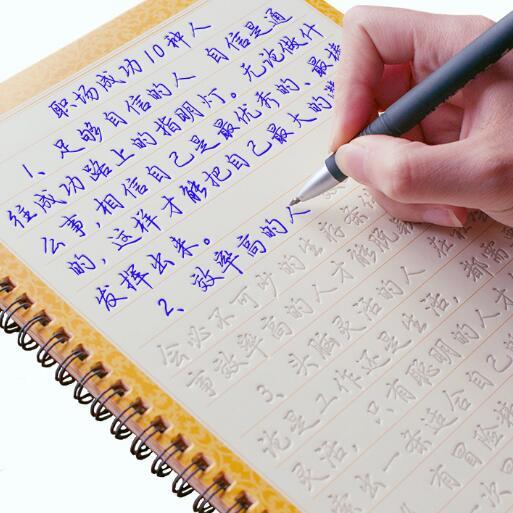 职场成功10种人
1、足够自信的人 自信是通
往成功路上的指明灯。无论做什
么事,相信自己是最优秀的、最棒
的,这样才能把自己最大的潜
发挥出来。
2、效率高的人
会必不可少的生存条
事效率高的人才能脱
3、头脑灵活的人 在社
论是工作还是生活,都需
灵活,只有聪明的人才
索出一条适合自己
有冒险精
一次